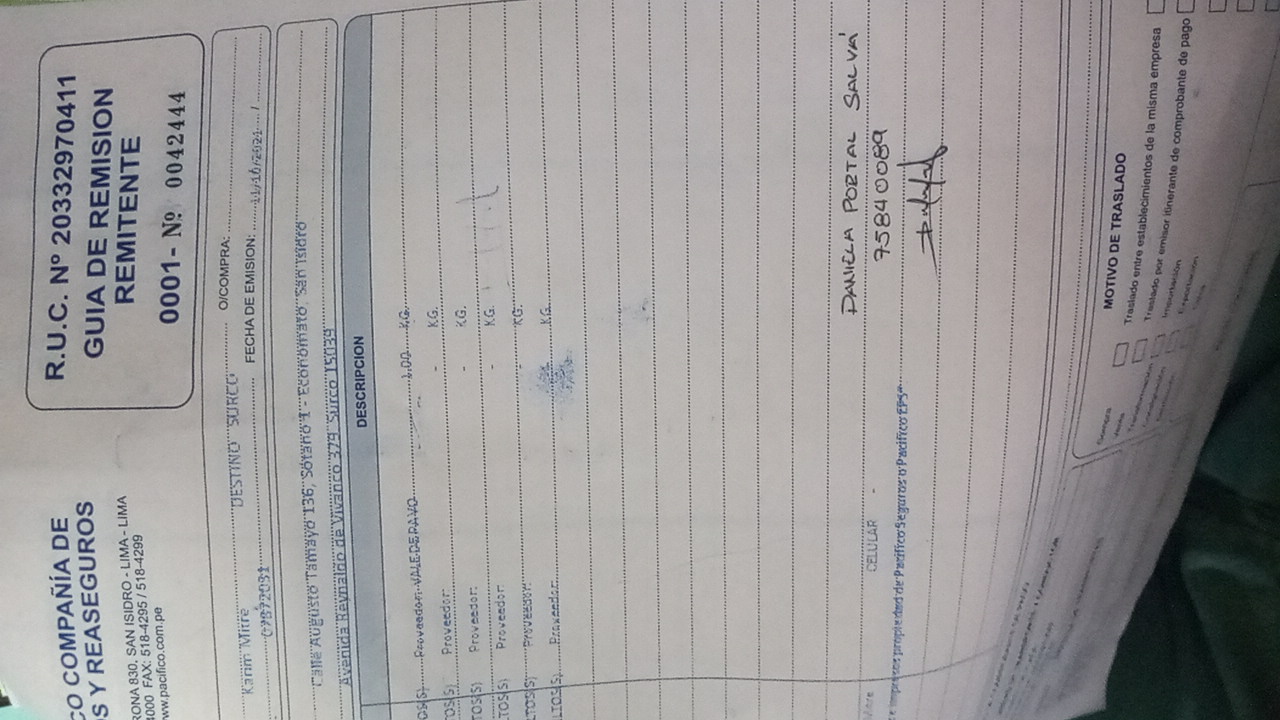 CO COMPAÑÍA DE
S Y REASEGUROS
RONA 830, SAN ISIDRO - LIMA - LIMA
4000 FAX: 518-4295 / 518-4299
www.pacifico.com.pe
R.U.C. Nº 20332970411
GUIA DE REMISION
REMITENTE
0001- Nº 0042444
Karim Mitre DESTINO SURCO O/COMPRA:
07872031 FECHA DE EMISION: 11/10/2021 /
Calle Augusto Tamayo 136, Sótano 1 - Economato, San Isidro
Avenida Reynaldo de Vivanco 379 Surco 15039
DESCRIPCION
OS(S) Proveedor: VALE DE PAVO 1.00 KG.
TOS(S) Proveedor: - KG.
TOS(S) Proveedor: - KG.
LTOS(S) Proveedor: - KG.
LTOS(S) Proveedor: - KG.
LTOS(S) Proveedor: KG.
DANICA PORTAL SALVÁ
Mitre CELULAR - 75840089
impresos propiedad de Pacífico Seguros o Pacífico EPS
MOTIVO DE TRASLADO
Traslado entre establecimientos de la misma empresa
Traslado por emisor itinerante de comprobante de pago
Importación
Exportación